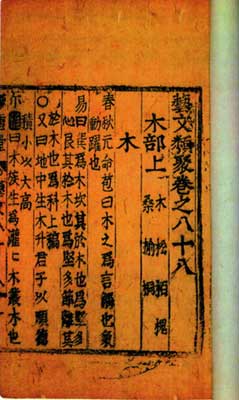 藝文類聚卷之八十八
木部上 木 松 柏 槐
桑 榆 桐
木
春秋元命苞曰木之為言觸也氣
動躍也
易曰巽為木坎其於木也為堅多
心艮其於木也為堅多節離其
於木也為科上槁
〇又曰地中生木升君子以順德
積小以大高
尔雅曰木族生為灌 木叢木也